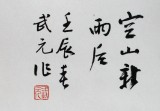 空山新
雨后
壬辰春
武元作